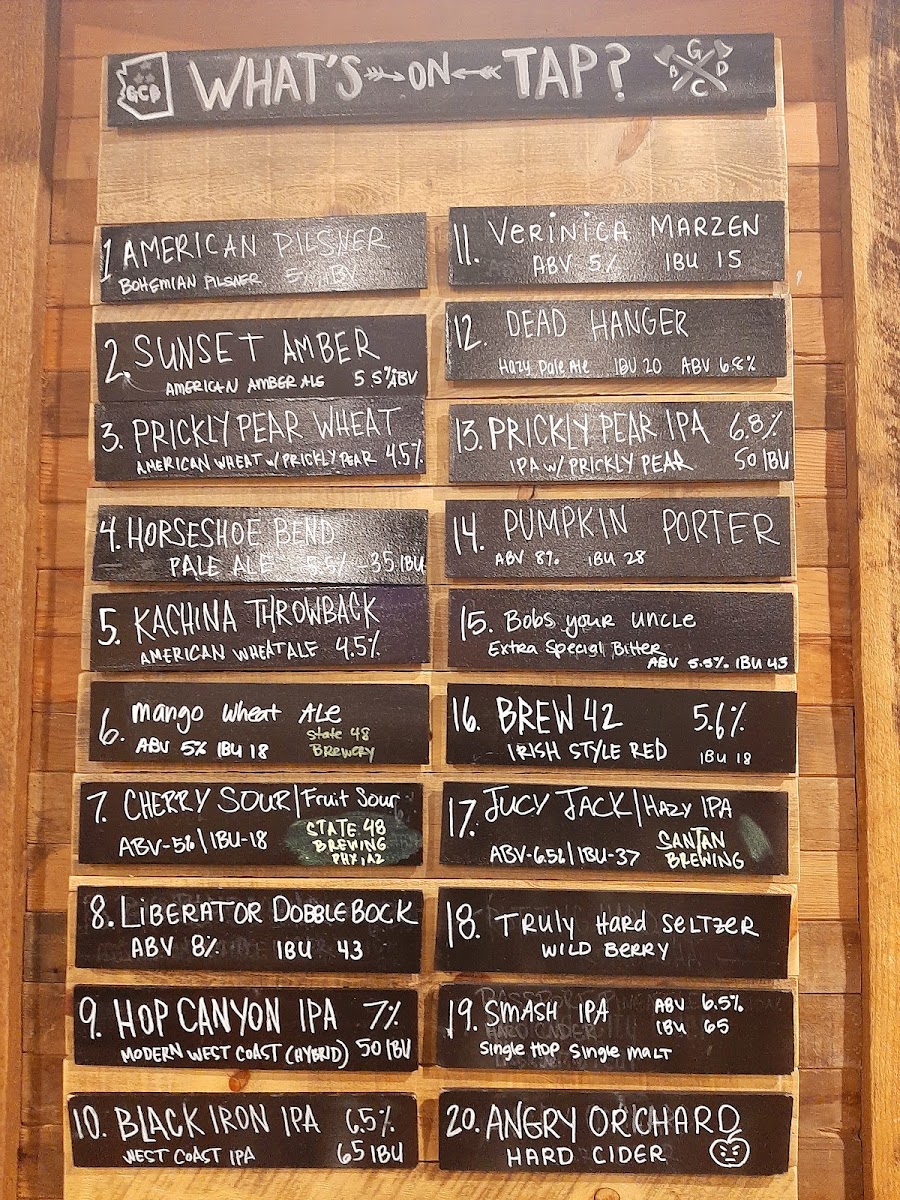 GCB WHAT'S ON TAP? G B D C
1 AMERICAN PILSNER
BOHEMIAN PILSNER 5% ABV
2. SUNSET AMBER
AMERICAN AMBER ALE 5.5% ABV
3. PRICKLY PEAR WHEAT
AMERICAN WHEAT w/ PRICKLY PEAR 4.5%
4. HORSESHOE BEND
PALE ALE 5.5% -35 IBU
5. KACHINA THROWBACK
AMERICAN WHEAT ALE 4.5%
6. mango wheat ALe
ABV 5% IBU 18
State 48
BREWERY
7. CHERRY SOUR|Fruit Sour
ABV-56|IBU-18
STATE 48
BREWING
PHX, AZ
8. LIBERATOR DOBBLEBOCK
ABV 8% IBU 43
9. HOP CANYON IPA 7%
MODERN WEST COAST (HYBRID) 50 IBU
10. BLACK IRON IPA 6.5%
WEST COAST IPA 65 IBU
11. VeRiNiCA MARZEN
ABV 5% IBU 15
12. DEAD HANGER
Hazy Pale Ale IBU 20 ABV 6.8%
13. PRICKLY PEAR IPA 6.8%
IPA w/ PRICKLY PEAR 50 IBU
14. PUMPKIN PORTER
ABV 8% IBU 28
15. Bobs your uncle
Extra Special Bitter
ABV 5.5% IBU 43
16. BREW 42 5.6%
IRISH STYLE RED IBU 18
17. JUCY JACK|HAZY IPA
ABV-656|IBU-37
SANTAN
BREWING
18. TRuLy HaRd SeLTzeR
WILD BERRY
19. SMASH IPA ABV 6.5%
IBU 65
Single Hop Single malt
20. ANGRY ORCHARD
HARD CIDER